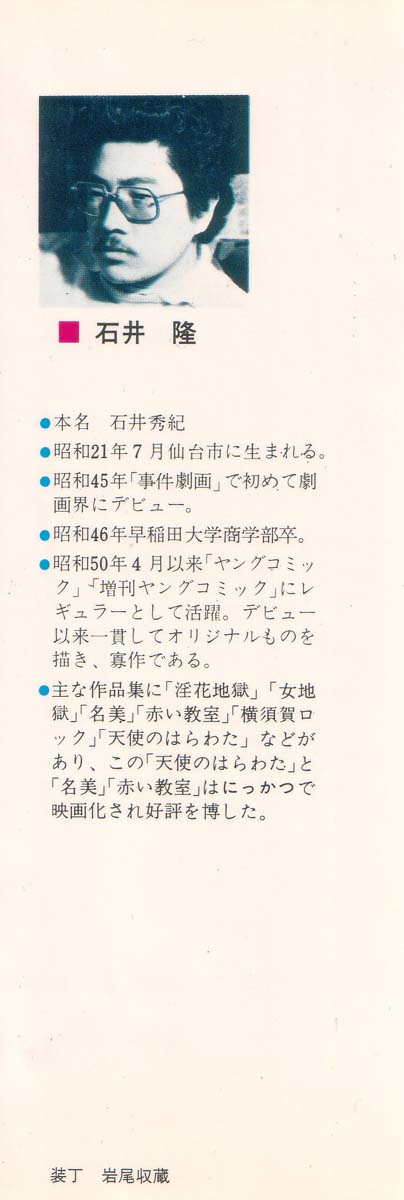 ■ 石井 隆
●本名 石井秀紀
●昭和21年7月仙台市に生まれる。
●昭和45年「事件劇画」で初めて劇
画界にデビュー。
●昭和46年早稲田大学商学部卒。
●昭和50年4月以来「ヤングコミッ
ク」「増刊ヤングコミック」にレ
ギュラーとして活躍。デビュー
以来一貫してオリジナルものを
描き、寡作である。
●主な作品集に「淫花地獄」「女地
獄」「名美」「赤い教室」「横須賀ロ
ック」「天使のはらわた」などが
あり、この「天使のはらわた」と
「名美」「赤い教室」はにっかつで
映画化され好評を博した。
装丁 岩尾収蔵